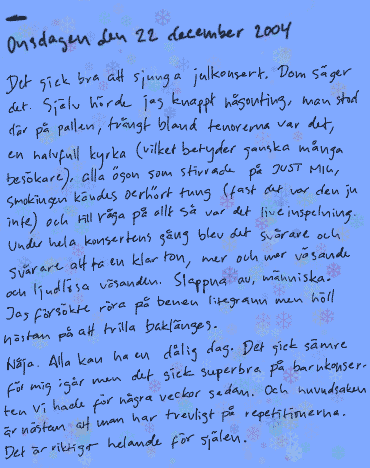 Onsdagen den 22 december 2004
Det gick bra att sjunga julkonsert. Dom säger
det. Själv hörde jag knappt någonting, man stod
där på pallen, trångt bland tenorerna var det,
en halvfull kyrka (vilket betyder ganska många
besökare), alla ögon som stirrade på JUST MIG,
smokingen kändes oerhört tung (fast det var den ju
inte) och till råga på allt så var det liveinspelning.
Under hela konsertens gång blev det svårare och
svårare att ta en klar ton, mer och mer väsande
och ljudlösa väsanden. Slappna av, människa.
Jag försökte röra på benen litegrann men höll
nästan på att trilla baklänges.
Nåja. Alla kan ha en dålig dag. Det gick sämre
för mig igår men det gick superbra på barnkonser-
ten vi hade för några veckor sedan. Och huvudsaken
är nästan att man har trevligt på repetitionerna.
Det är riktigt helande för själen.